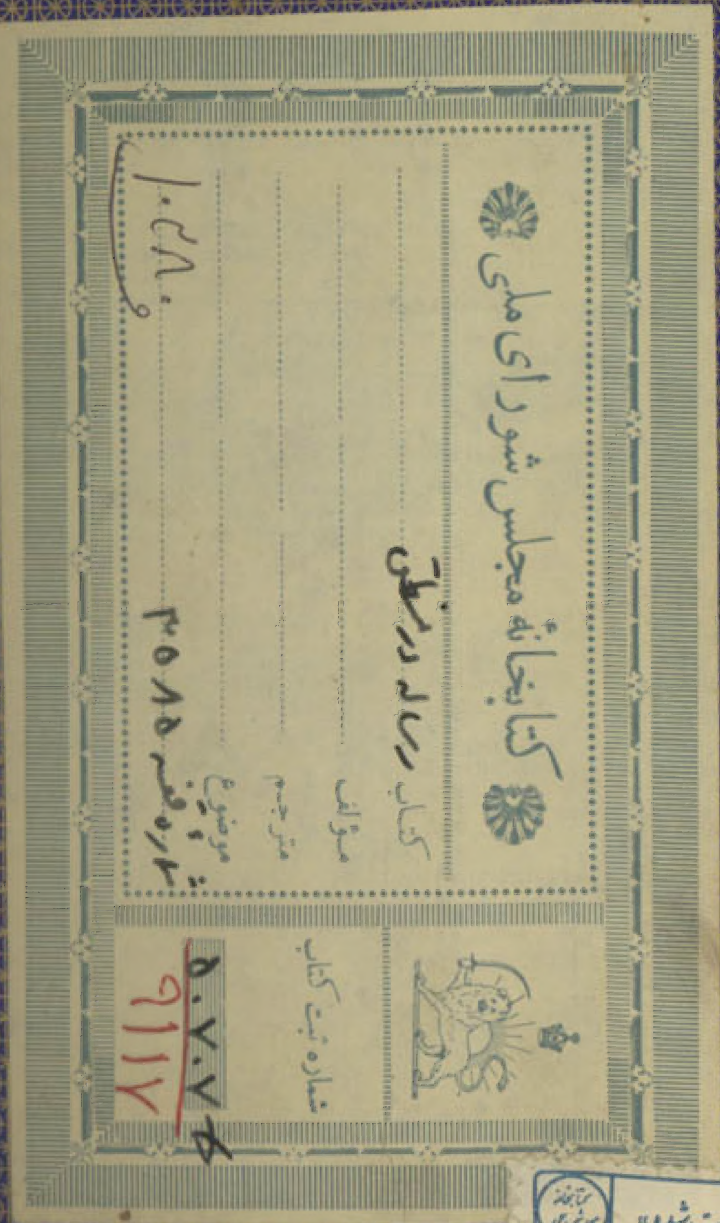 کتابخانهٔ مجلس شورای ملی
کتاب رساله در منطق
مؤلف
مترجم
موضوع
شماره قفسه ۳۵۸۵
۱۰۲۸۰
شماره ثبت کتاب
۵۰۷۰۷
۹۱۱۷
کتابخانه